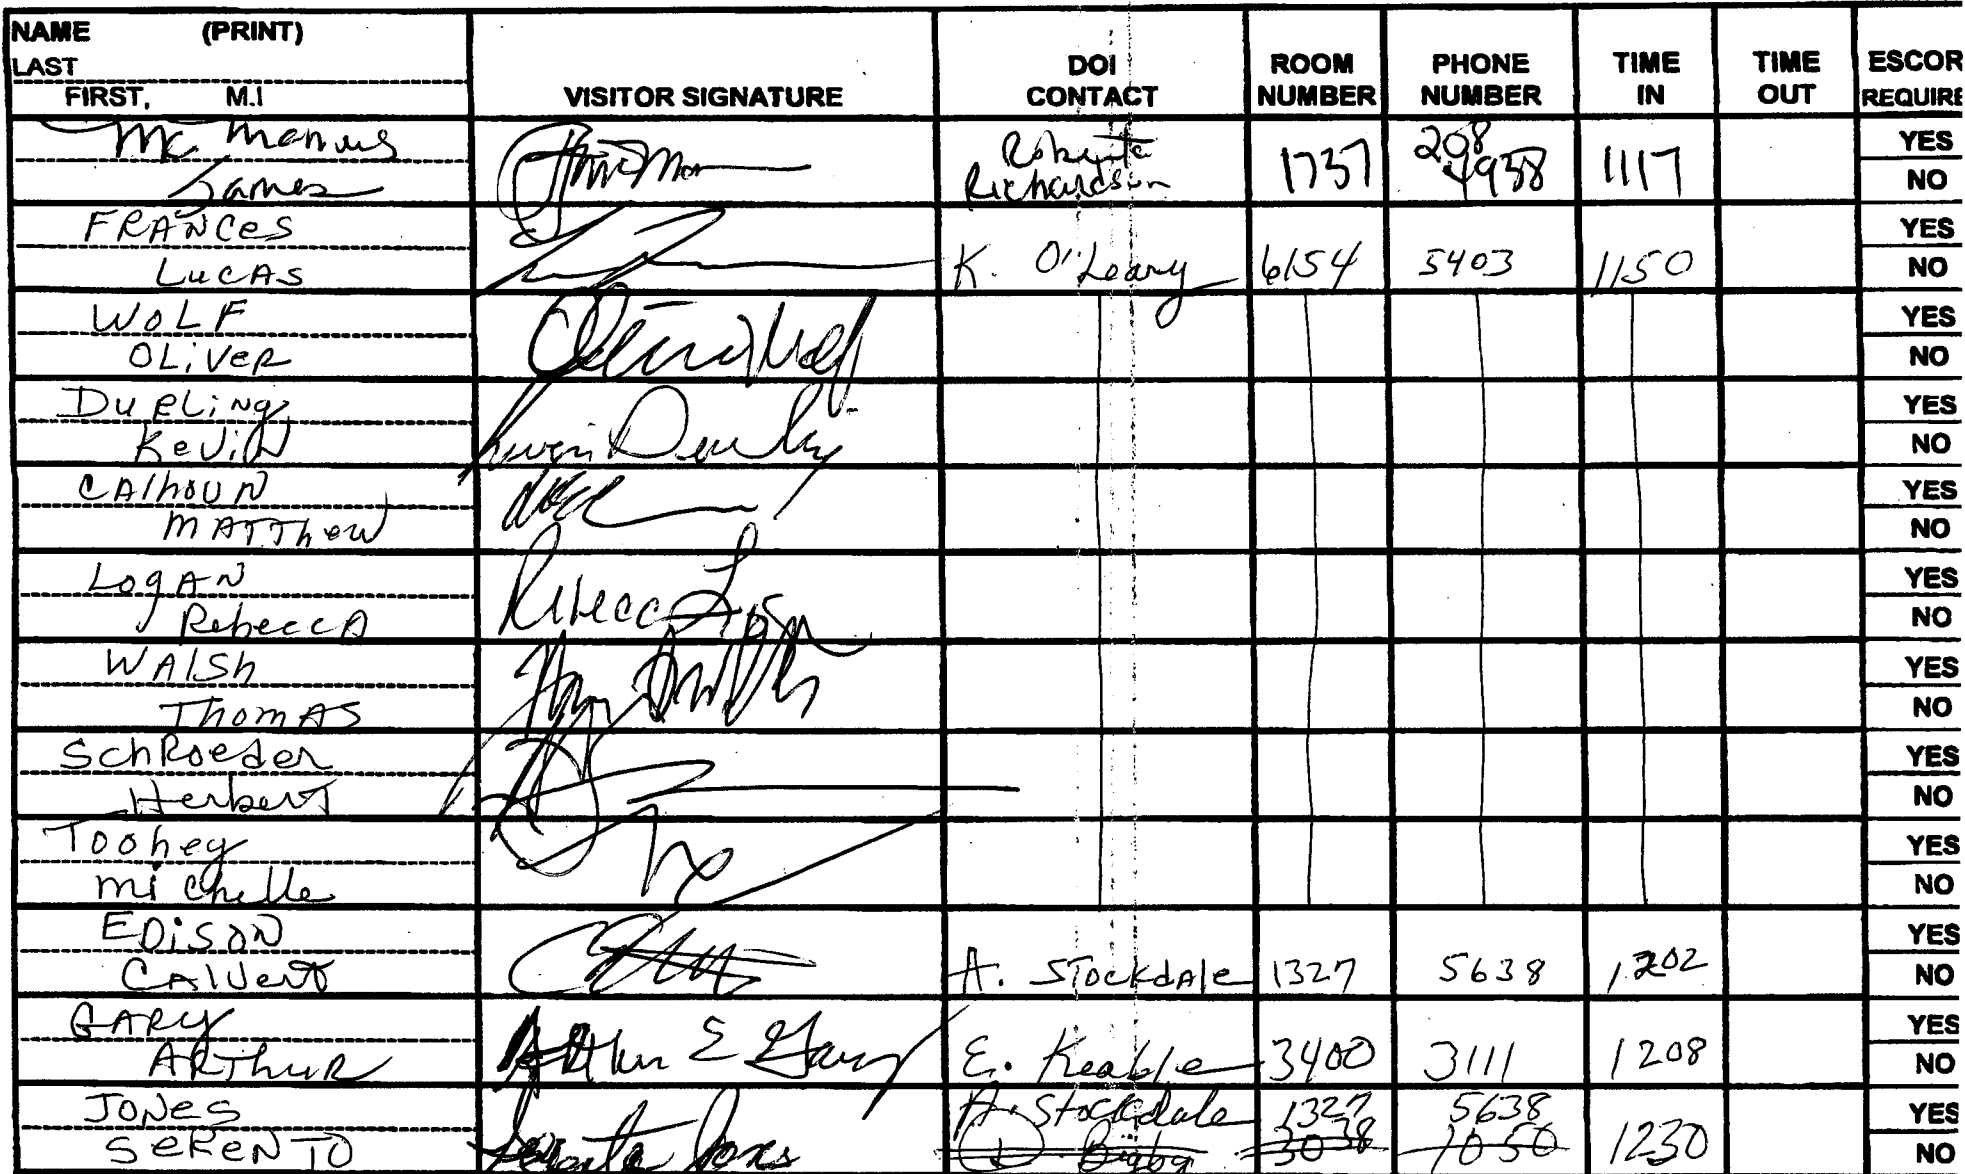 NAME (PRINT)
LAST
FIRST, M.I
VISITOR SIGNATURE
DOI CONTACT
ROOM NUMBER
PHONE NUMBER
TIME IN
TIME OUT
ESCOR
REQUIRE
McManus
James
Roberta
Richardson
1737
208
4938
1117
YES
NO
FRANCES
LUCAS
K. O'Leary
6154
5403
1150
YES
NO
WOLF
OLiVER
YES
NO
DueLiNg
KeViN
YES
NO
CAlhouN
MATThew
YES
NO
LogAN
RebeccA
Rebecca Logan
YES
NO
WAlSh
ThomAS
YES
NO
SchRoeder
Herbert
YES
NO
Toohey
michelle
YES
NO
EDiSON
CAlVert
A. STockdAle
1327
5638
1202
YES
NO
GARY
ARThuR
Arthur E Gary
E. Keable
3400
3111
1208
YES
NO
JONeS
SeReNTO
A. Stockdale
1327
5638
D. Bigby
3038
1050
1230
YES
NO